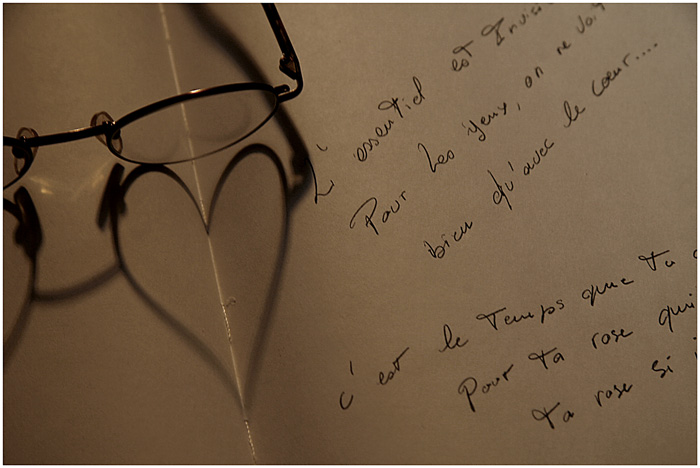 L'essentiel est Invisi
Pour les yeux, on ne voit
bien qu'avec le cœur....
C'est le Temps que Ta
Pour Ta rose qui
Ta rose si